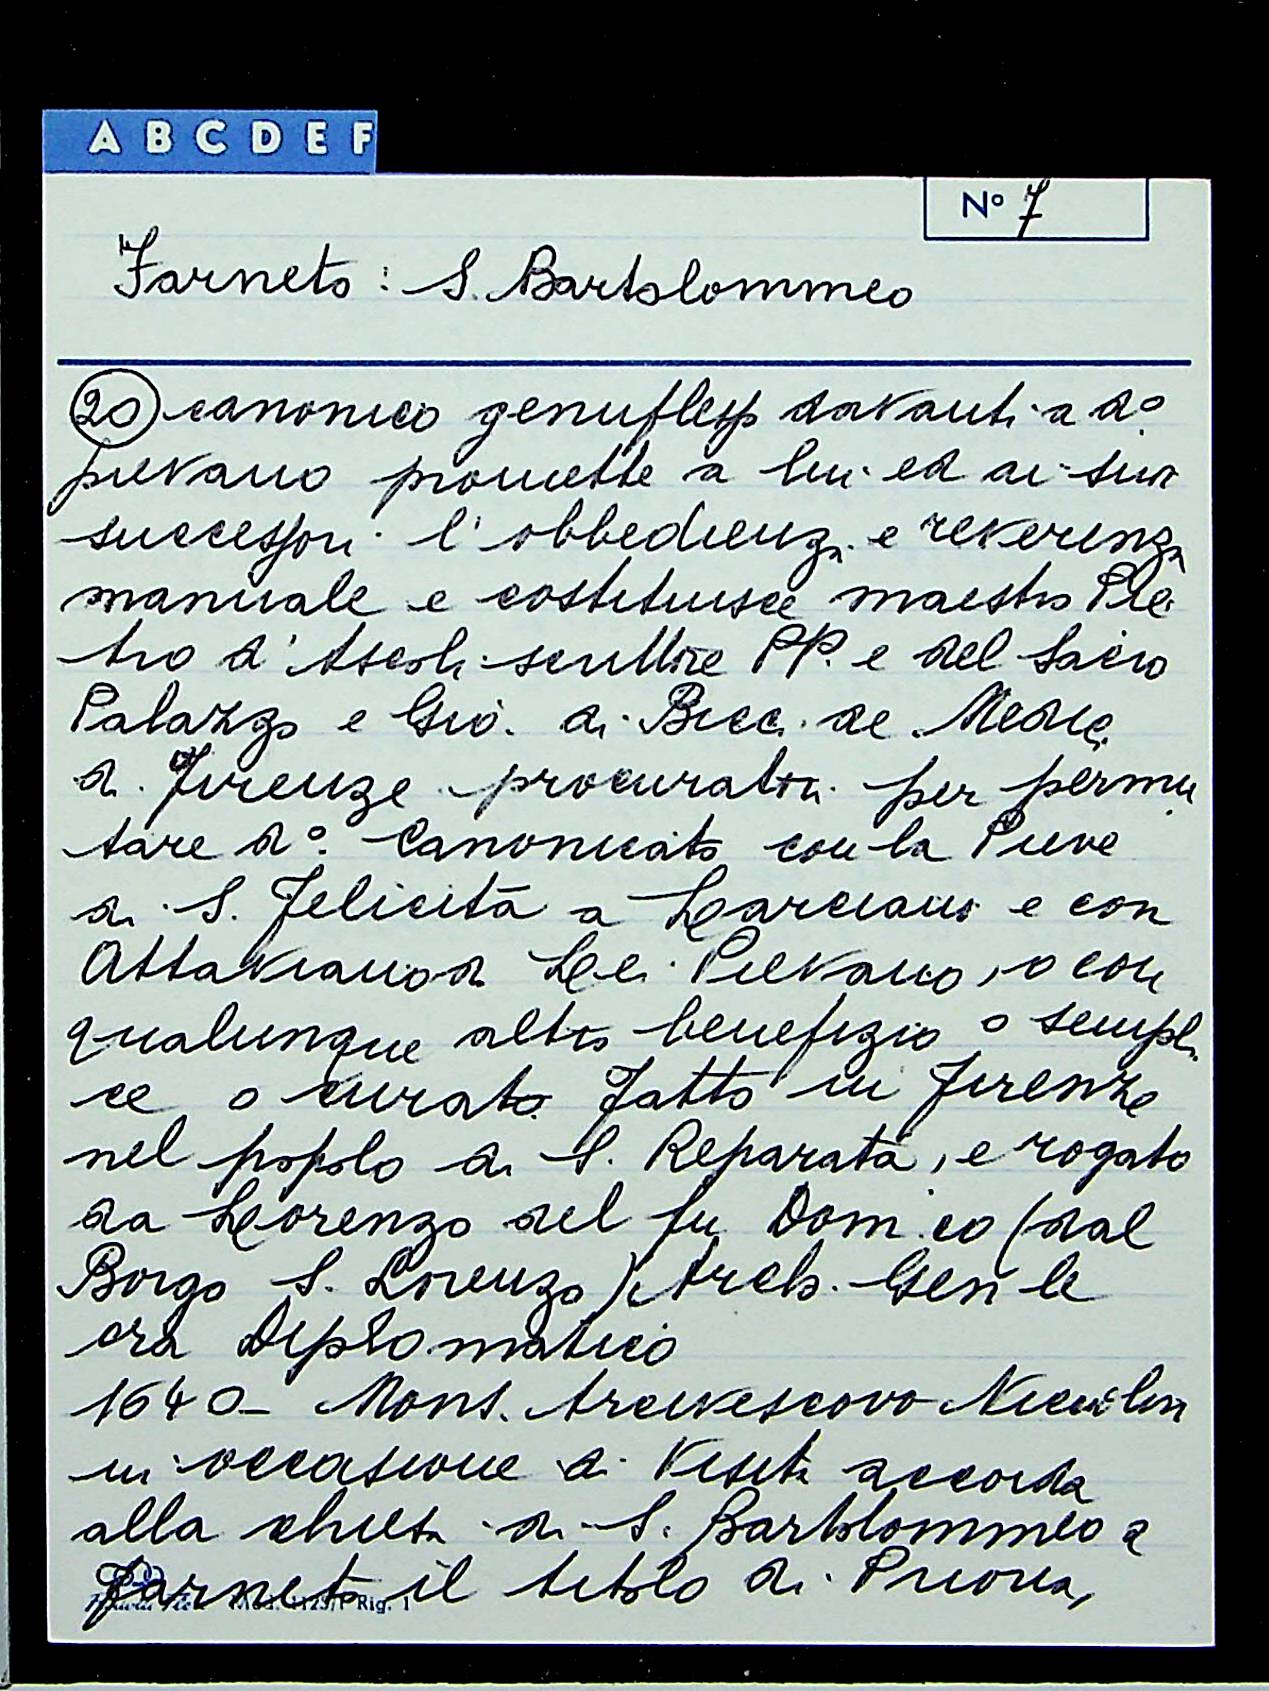 A B C D E F
N° 7
Farneto : S. Bartolommeo
20 canonico genuflesso davanti a d°
pievano promette a lui ed ai suoi
successori l'obbedienza e reverenza
manuale e costituisce maestro Pie
tro d'Ascoli scrittore PP. e del Sacro
Palazzo e Gio. di Bicci de Medici
di Firenze procuratori per permu
tare d°. Canonicato con la Pieve
di S. Felicità a Larciano e con
Attaviano di Lei Pievano, o con
qualunque altro benefizio o sempli
ce o curato. Fatto in Firenze
nel popolo di S. Reparata, e rogato
da Lorenzo del fu Dom.co (dal
Borgo S. Lorenzo) Arch. Gen le
ora Diplomatico
1640 - Mons. Arcivescovo Niccolini
in occasione di Visita accorda
alla chiesa di S. Bartolommeo a
Farneto il titolo di Prioria,
Mod. 1125/P Rig. 1